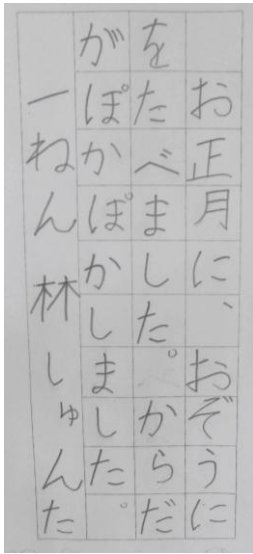 お正月に、おぞうに
をたべました。からだ
がぽかぽかしました。
一ねん 林しゅんた